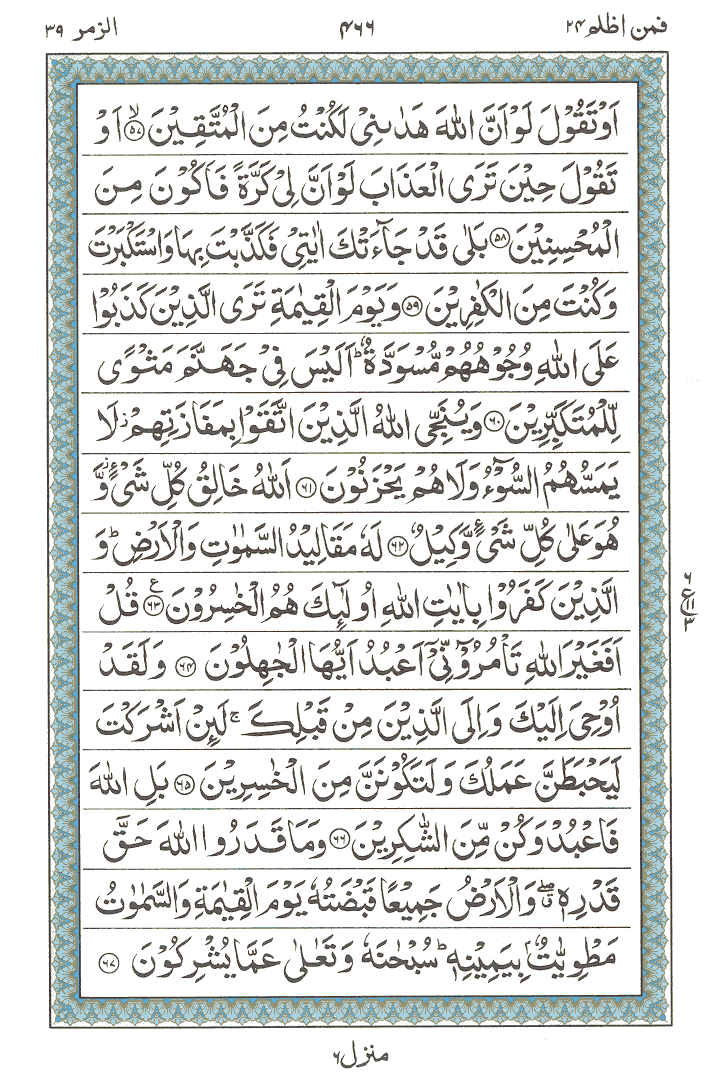 فمن اظلم ۲۴ ۴۶۶ الزمر ۳۹
اَوْ تَقُوْلَ لَوْ اَنَّ اللّٰهَ هَدٰىنِیْ لَكُنْتُ مِنَ الْمُتَّقِیْنَ ۙ﴿۵۷﴾ اَوْ
تَقُوْلَ حِیْنَ تَرَی الْعَذَابَ لَوْ اَنَّ لِیْ كَرَّةً فَاَكُوْنَ مِنَ
الْمُحْسِنِیْنَ ﴿۵۸﴾ بَلٰی قَدْ جَآءَتْكَ اٰیٰتِیْ فَكَذَّبْتَ بِهَا وَ اسْتَكْبَرْتَ
وَ كُنْتَ مِنَ الْكٰفِرِیْنَ ﴿۵۹﴾ وَ یَوْمَ الْقِیٰمَةِ تَرَی الَّذِیْنَ كَذَبُوْا
عَلَی اللّٰهِ وُجُوْهُهُمْ مُّسْوَدَّةٌ ؕ اَلَیْسَ فِیْ جَهَنَّمَ مَثْوًی
لِّلْمُتَكَبِّرِیْنَ ﴿۶۰﴾ وَ یُنَجِّی اللّٰهُ الَّذِیْنَ اتَّقَوْا بِمَفَازَتِهِمْ ؗ لَا
یَمَسُّهُمُ السُّوْٓءُ وَ لَا هُمْ یَحْزَنُوْنَ ﴿۶۱﴾ اَللّٰهُ خَالِقُ كُلِّ شَیْءٍ ؗ وَّ
هُوَ عَلٰی كُلِّ شَیْءٍ وَّكِیْلٌ ﴿۶۲﴾ لَهٗ مَقَالِیْدُ السَّمٰوٰتِ وَ الْاَرْضِ ؕ وَ
الَّذِیْنَ كَفَرُوْا بِاٰیٰتِ اللّٰهِ اُولٰٓىِٕكَ هُمُ الْخٰسِرُوْنَ ﴿۶۳﴾ ع قُلْ
اَفَغَیْرَ اللّٰهِ تَاْمُرُوْٓنِّیْۤ اَعْبُدُ اَیُّهَا الْجٰهِلُوْنَ ﴿۶۴﴾ وَ لَقَدْ
اُوْحِیَ اِلَیْكَ وَ اِلَی الَّذِیْنَ مِنْ قَبْلِكَ ۚ لَىِٕنْ اَشْرَكْتَ
لَیَحْبَطَنَّ عَمَلُكَ وَ لَتَكُوْنَنَّ مِنَ الْخٰسِرِیْنَ ﴿۶۵﴾ بَلِ اللّٰهَ
فَاعْبُدْ وَ كُنْ مِّنَ الشّٰكِرِیْنَ ﴿۶۶﴾ وَ مَا قَدَرُوا اللّٰهَ حَقَّ
قَدْرِهٖ ۖۗ وَ الْاَرْضُ جَمِیْعًا قَبْضَتُهٗ یَوْمَ الْقِیٰمَةِ وَ السَّمٰوٰتُ
مَطْوِیّٰتٌۢ بِیَمِیْنِهٖ ؕ سُبْحٰنَهٗ وَ تَعٰلٰی عَمَّا یُشْرِكُوْنَ ﴿۶۷﴾
۶
ع ۱۱
۳
منزل ۶